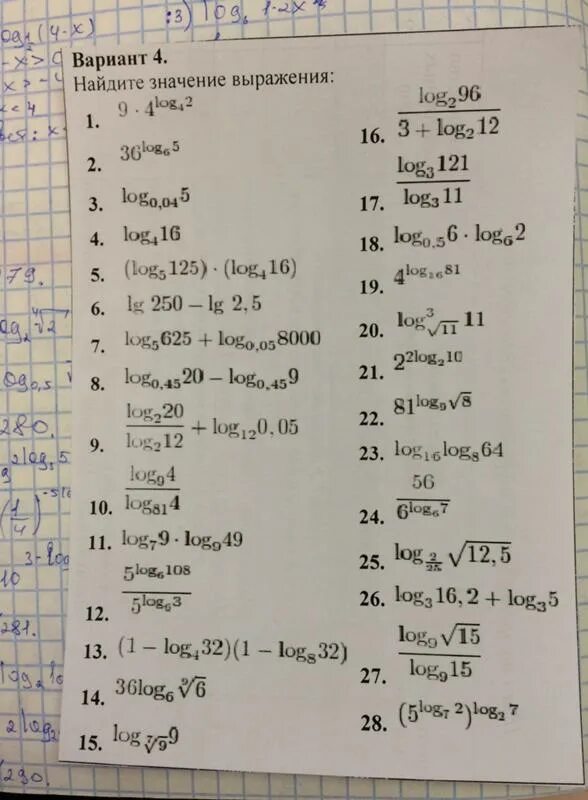 :3) log₅ 1-2x
log (4-x)
Вариант 4.
Найдите значение выражения:
1. 9 · 4^{log₄2}
2. 36^{log₆5}
3. log_{0,04}5
4. log₄16
5. (log₅125) · (log₄16)
6. lg 250 − lg 2,5
7. log₅625 + log_{0,05}8000
8. log_{0,45}20 − log_{0,45}9
9. \frac{log₂20}{log₂12} + log₁₂0,05
10. \frac{log₉4}{log₈₁4}
11. log₇9 · log₉49
12. \frac{5^{log₆108}}{5^{log₆3}}
13. (1 − log₄32)(1 − log₈32)
14. 36log₆∛6
15. log_{\sqrt[7]{9}}9
16. \frac{log₂96}{3 + log₂12}
17. \frac{log₃121}{log₃11}
18. log_{0,5}6 · log₆2
19. 4^{log₁₆81}
20. log³_{√11}11
21. 2^{2log₂10}
22. 81^{log₉√8}
23. log₁₆log₈64
24. \frac{56}{6^{log₆7}}
25. log_{\frac{2}{25}}√12,5
26. log₃16,2 + log₃5
27. \frac{log₉√15}{log₉15}
28. (5^{log₇2})^{log₂7}
79.
280.
281.
290.